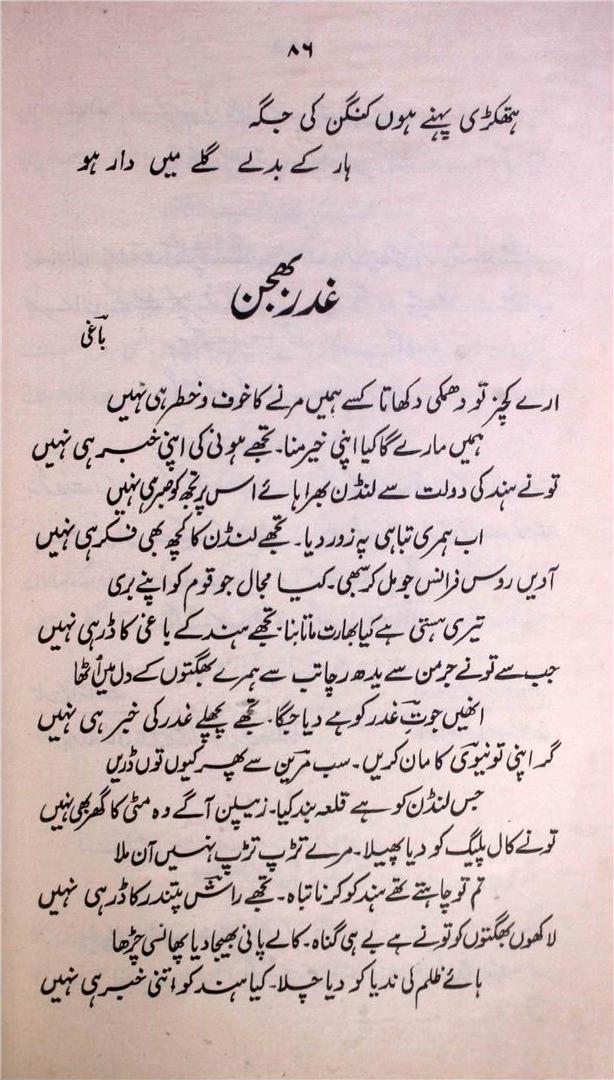 ۸۶
ہتھکڑی پہنے ہوں کنگن کی جگہ
ہار کے بدلے گلے میں دار ہو
غدر بھجن
باغی
ارے کچز تو دھمکی دکھاتا کسے ہمیں مرنے کا خوف و خطر ہی نہیں
ہمیں مارے گا کیا اپنی خیر منا۔ تجھے ہونی کی اپنی خبر ہی نہیں
تونے ہند کی دولت سے لنڈن بھرا ہائے اس پر تجھ کو صبر ہی نہیں
اب ہمری تباہی پہ زور دیا۔ تجھے لنڈن کا کچھ بھی فکر ہی نہیں
آدیں روس فرانس جو مل کر سبھی۔ کیا مجال جو قوم کو اپنے بری
تیری ہستی ہے کیا بھارت ماتا بنا۔ تجھے ہند کے باغی کا ڈر ہی نہیں
جب سے تونے جرمن سے یدھ رچا تب سے ہمرے بھگتوں کے دل میں اُٹھا
انھیں جوتِ غدر کو ہے دیا جگا۔ تجھے پچھلے غدر کی خبر ہی نہیں
گر اپنی تو نیوی کا مان کریں۔ سب مرین سے پھر کیوں توں ڈریں
جس لنڈن کو ہے قلعہ بند کیا۔ زیپلن آگے وہ مٹی کا گھر بھی نہیں
تونے کال پلیگ کو دیا پھیلا۔ مرے تڑپ تڑپ نہیں آن ملا
تم تو چاہتے تھے ہند کو کرنا تباہ۔ تجھے راش پتندر کا ڈر ہی نہیں
لاکھوں بھگتوں کو تونے ہے بے ہی گناہ۔ کالے پانی بھیجا دیا پھانسی چڑھا
ہائے ظلم کی ندیا کو دیا چلا۔ کیا ہند کو اتنی خبر ہی نہیں